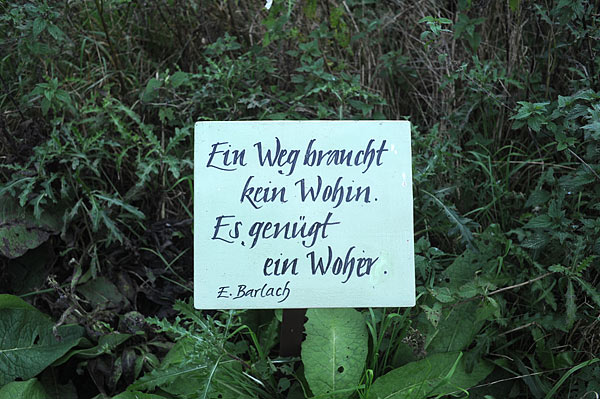 Ein Weg braucht
kein Wohin.
Es genügt
ein Woher.
E. Barlach